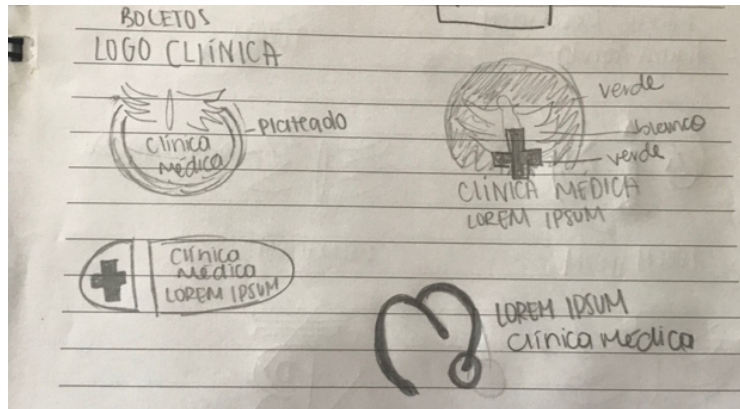 BOCETOS
LOGO CLIÍNICA
Clínica
Médica
Plateado
verde
blanco
verde
CLÍNICA MÉDICA
LOREM IPSUM
Clínica
Médica
LOREM IPSUM
LOREM IPSUM
Clínica Médica